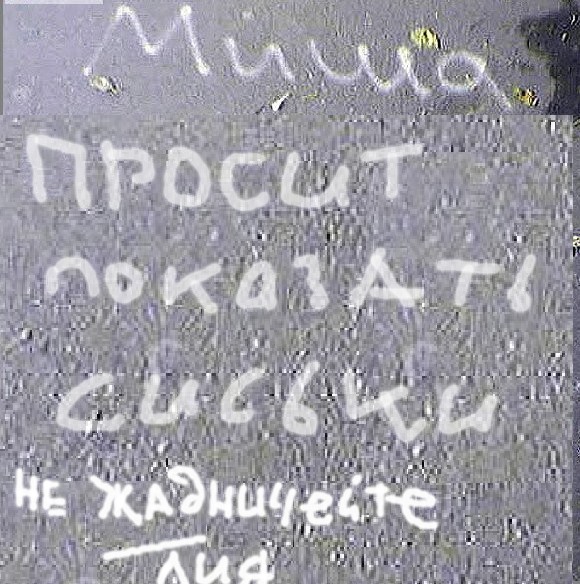 Миша
ПРОСИТ
ПОКАЗАТЬ
СИСЬКИ
НЕ ЖАДНИЧЕЙТЕ
ЛИЯ